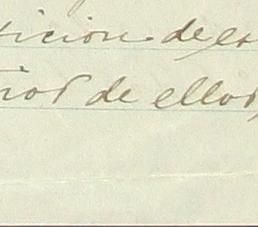 icion de es
ños de ellos,